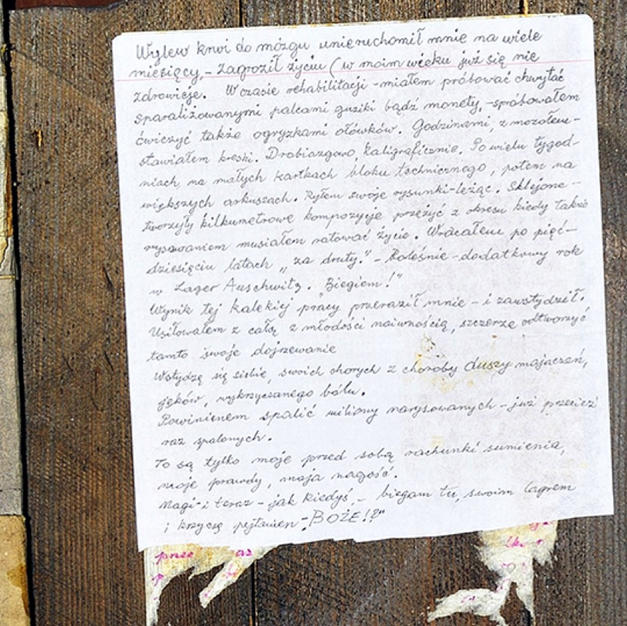 Wylew krwi do mózgu unieruchomił mnie na wiele
miesięcy, - zagroził życiu (w moim wieku już się nie
zdrowieje. W czasie rehabilitacji - miałem próbować chwytać
sparaliżowanymi palcami guziki bądź monety, - spróbowałem
ćwiczyć także ogryzkami ołówków. Godzinami, z mozołem -
stawiałem kreski. Drobiazgowo, kaligraficznie. Po wielu tygod-
niach, na małych kartkach bloku technicznego, potem na
większych arkuszach. Ryłem swoje rysunki - leżąc. Sklejone -
tworzyły kilkumetrowe kompozycje przeżyć z okresu kiedy także
rysowaniem musiałem ratować życie. Wracałem po pięć-
dziesięciu latach „za druty." - Boleśnie - dodatkowy rok
w Lager Auschwitz. „Biegiem!"
Wynik tej kalekiej pracy przeraził mnie - i zawstydził.
Usiłowałem z całą z młodości naiwnością, szczerze odtworzyć
tamto swoje dojrzewanie
Wstydzę się siebie, swoich chorych z choroby duszy majaczeń,
jęków, wykrzyczanego bólu.
Powinienem spalić miliony narysowanych - już przecież
raz spalonych.
To są tylko moje przed sobą rachunki sumienia,
moje prawdy, moja nagość.
Nagi - i teraz - jak kiedyś - biegam tu, swoim lagrem
i krzyczę pytaniem - „BOŻE!?"
prze az